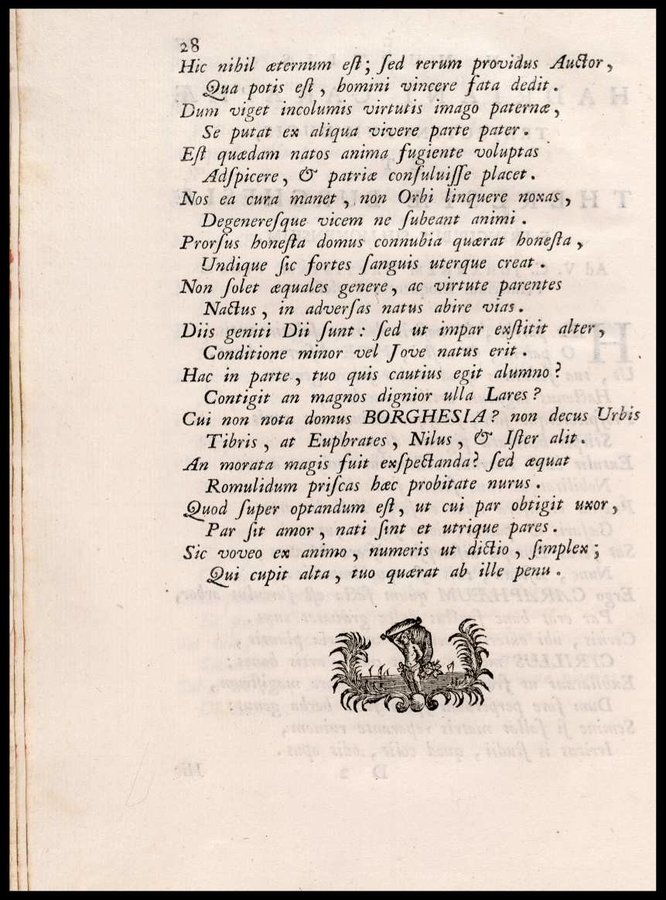 28
Hic nihil æternum eſt; ſed rerum providus Auctor,
Qua potis eſt, homini vincere fata dedit.
Dum viget incolumis virtutis imago paternæ,
Se putat ex aliqua vivere parte pater.
Eſt quædam natos anima fugiente voluptas
Adſpicere, & patriæ conſuluiſſe placet.
Nos ea cura manet, non Orbi linquere noxas,
Degenereſque vicem ne ſubeant animi.
Prorſus honeſta domus connubia quærat honeſta,
Undique ſic fortes ſanguis uterque creat.
Non ſolet æquales genere, ac virtute parentes
Nactus, in adverſas natus abire vias.
Diis geniti Dii ſunt: ſed ut impar exſtitit alter,
Conditione minor vel Jove natus erit.
Hac in parte, tuo quis cautius egit alumno?
Contigit an magnos dignior ulla Lares?
Cui non nota domus BORGHESIA? non decus Urbis
Tibris, at Euphrates, Nilus, & Iſter alit.
An morata magis fuit exſpectanda? ſed æquat
Romulidum priſcas hæc probitate nurus.
Quod ſuper optandum eſt, ut cui par obtigit uxor,
Par ſit amor, nati ſint et utrique pares.
Sic voveo ex animo, numeris ut dictio, ſimplex;
Qui cupit alta, tuo quærat ab ille penu.